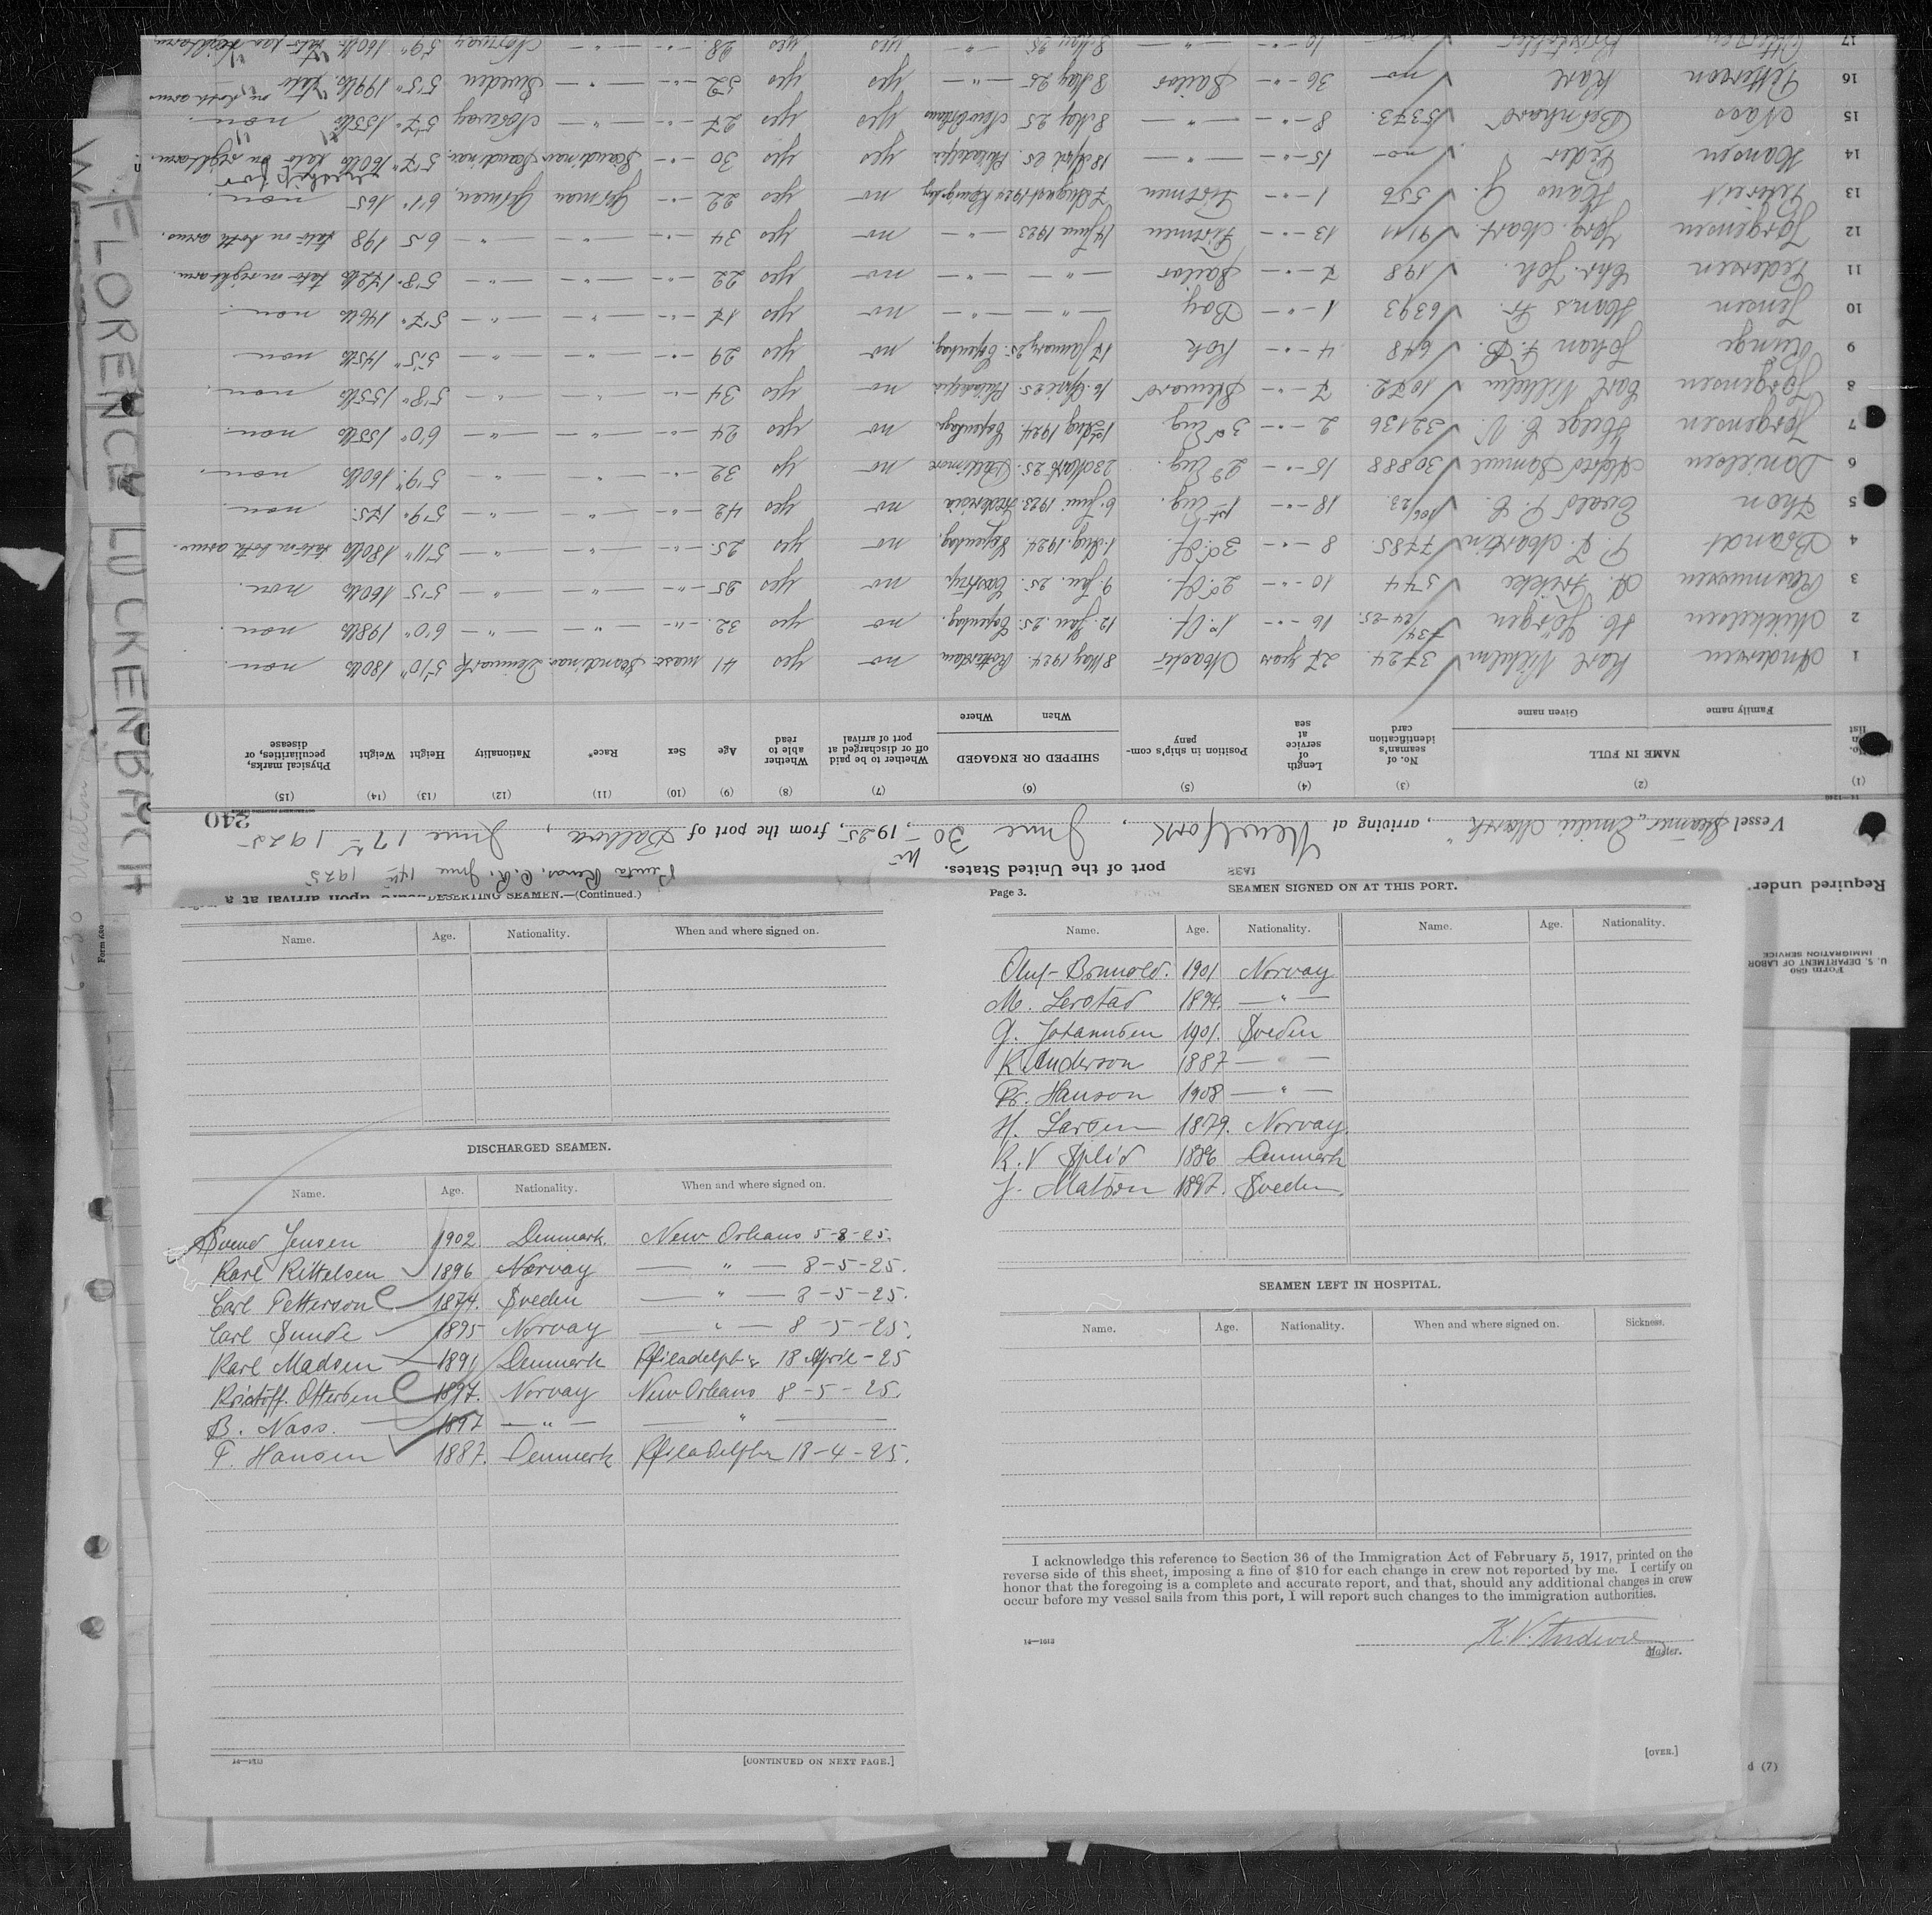 Form 680
U. S. DEPARTMENT OF LABOR
IMMIGRATION SERVICE
Required under
port of the United States.
Punta Renas, C.R. June 14th 1925
Vessel Steamer "Emilie Maersk", arriving at New York, June 30th, 1925, from the port of Balboa, June 17th 1925
240
14—1240
(1) (2) (3) (4) (5) (6) (7) (8) (9) (10) (11) (12) (13) (14) (15)
No. on list NAME IN FULL No. of seaman's identification card Length of service at sea Position in ship's company SHIPPED OR ENGAGED Whether to be paid off or discharged at port of arrival Whether able to read Age Sex Race* Nationality Height Weight Physical marks, peculiarities, or disease
Family name Given name When Where
1 Andersen Karl Vilhelm 3724 27 years Master 8 May 1924 Rotterdam no yes 41 mase Scandinav Denmark 5'10" 180 lb non
2 Mikkelsen H. Jörgen 734/24-25 16 -"- 1º Of. 12 Jan. 25. Copenhag. no yes 32 -"- -"- -"- 6'0" 198 lb non
3 Rasmussen A. Frikke 544 10 -"- 2º Of. 9 Jan. 25. no yes 25 -"- -"- -"- 5'5 160 lb non.
4 Brandt P. J. Martin 7785. 8 -"- 3º Of. 1 Aug. 1924 Copenhag. no yes 25. -"- -"- -"- 5'11" 180 lb tato on both arms.
5 Thon Ewald P. C. 106/23. 18 -"- 1st Eng. 6 Juni 1923 Fredericia no yes 42 -"- -"- -"- 5'9" 175. non.
6 Danielsen Alfred Samuel 30888 15 -"- 2º Eng. 23 Marts 25. Baltimore no yes 32 -"- -"- -"- 5'9" 160 lb non.
7 Jørgensen Helge C. V. 32136 2 -"- 3º Eng 1st Aug 1924. Copenhag. no yes 24 -"- -"- -"- 6'0" 155 lb non.
8 Jørgensen Carl Vilhelm 1072. 7 -"- Steward 16. April 25. Philadelfia no yes 34 -"- -"- -"- 5'8" 155 lb non.
9 Runge Johan F. B. 648 4 -"- Kok 17 January 25. Copenhag. no yes 29 -"- -"- -"- 5'5" 145 lb non
10 Jensen Hans Fr. 6393 1 -"- Boy -"- -"- no yes 17 -"- -"- -"- 5'7" 146 lb non.
11 Pedersen Chr. Joh. 198 7 -"- Sailor -"- -"- no yes 22 -"- -"- -"- 5'8" 172 lb tato on right arm.
12 Jørgensen Jørg. Mart. 9111 13 -"- Firemen 14 June 1923 -"- no yes 34 -"- -"- -"- 6'5 198 tato on both arms.
13 Hans J. 556 1 -"- Firemen 7 August 1924 no yes 22 -"- German German 6'1" 165 non.
14 Hansen Peder no 15 -"- -"- 18 April 25. Philadelfia yes yes 30 -"- Scandinav Scandinav 5'7" 160 lb tato on right arm.
15 Nass Bernhard 5373. 8 -"- -"- 8 May 25 New Orleans yes yes 27 -"- -"- Norway 5'7" 155 lb non.
16 Petterson Karl no 36 -"- Sailor 8 May 25 -"- yes yes 52 -"- -"- Sweden 5'5" 199 lb tato on both arms
17 Ottersen Kristoffer no 10 -"- -"- 8 May 25 -"- yes yes 28. -"- -"- Norway 5'9" 160 lb
W FLORENCE LUCKENBACH
Walton
Form 689
DESERTING SEAMEN.—(Continued.)
Name. Age. Nationality. When and where signed on.
DISCHARGED SEAMEN.
Name. Age. Nationality. When and where signed on.
Svend Jensen 1902 Denmark. New Orleans 5-8-25.
Karl Kittelsen 1896 Norway — " — 8-5-25.
Carl Petterson 1874. Sveden — " — 8-5-25.
Carl Sunde 1895 Norvay — " — 8-5-25.
Karl Madsen 1891 Denmark Philadelphia 18 April-25
Kristoff. Ottersen 1897. Norvay New Orleans 8-5-25.
B. Nass. 1897 — " — — " —
P. Hansen 1887. Denmark Philadelphia 18-4-25.
14—1613
[CONTINUED ON NEXT PAGE.]
Page 3.
SEAMEN SIGNED ON AT THIS PORT.
Name. Age. Nationality. Name. Age. Nationality.
Brunold. 1901 Norvay
M. Lerstad 1894. — " —
G. Johannsen 1901. Sveden
K. Anderson 1887 — " —
Fr. Hanson 1908 — " —
H. Larsen 1879. Norvay.
K. V Splid 1886 Denmark
J. Matson 1897. Sveden.
SEAMEN LEFT IN HOSPITAL.
Name. Age. Nationality. When and where signed on. Sickness.
I acknowledge this reference to Section 36 of the Immigration Act of February 5, 1917, printed on the
reverse side of this sheet, imposing a fine of $10 for each change in crew not reported by me. I certify on
honor that the foregoing is a complete and accurate report, and that, should any additional changes in crew
occur before my vessel sails from this port, I will report such changes to the immigration authorities.
14—1613
K. V. Andersen
Master.
[OVER.]
d (7)